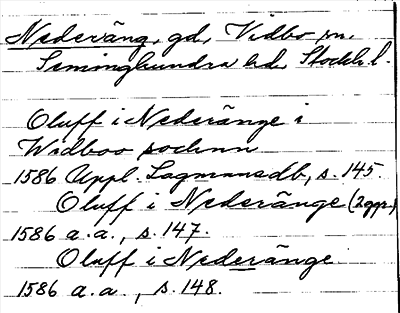 Nederäng, gd, Vidbo sn.
Seminghundra hd, Stockh. l.
Oluff i Nederänge i
Widboo sochnn
1586 Uppl. Lagmansdb, s. 145.
Oluff i Nederänge (2 ggr)
1586 a.a., s. 147.
Oluff i Nederänge
1586 a.a., s. 148.